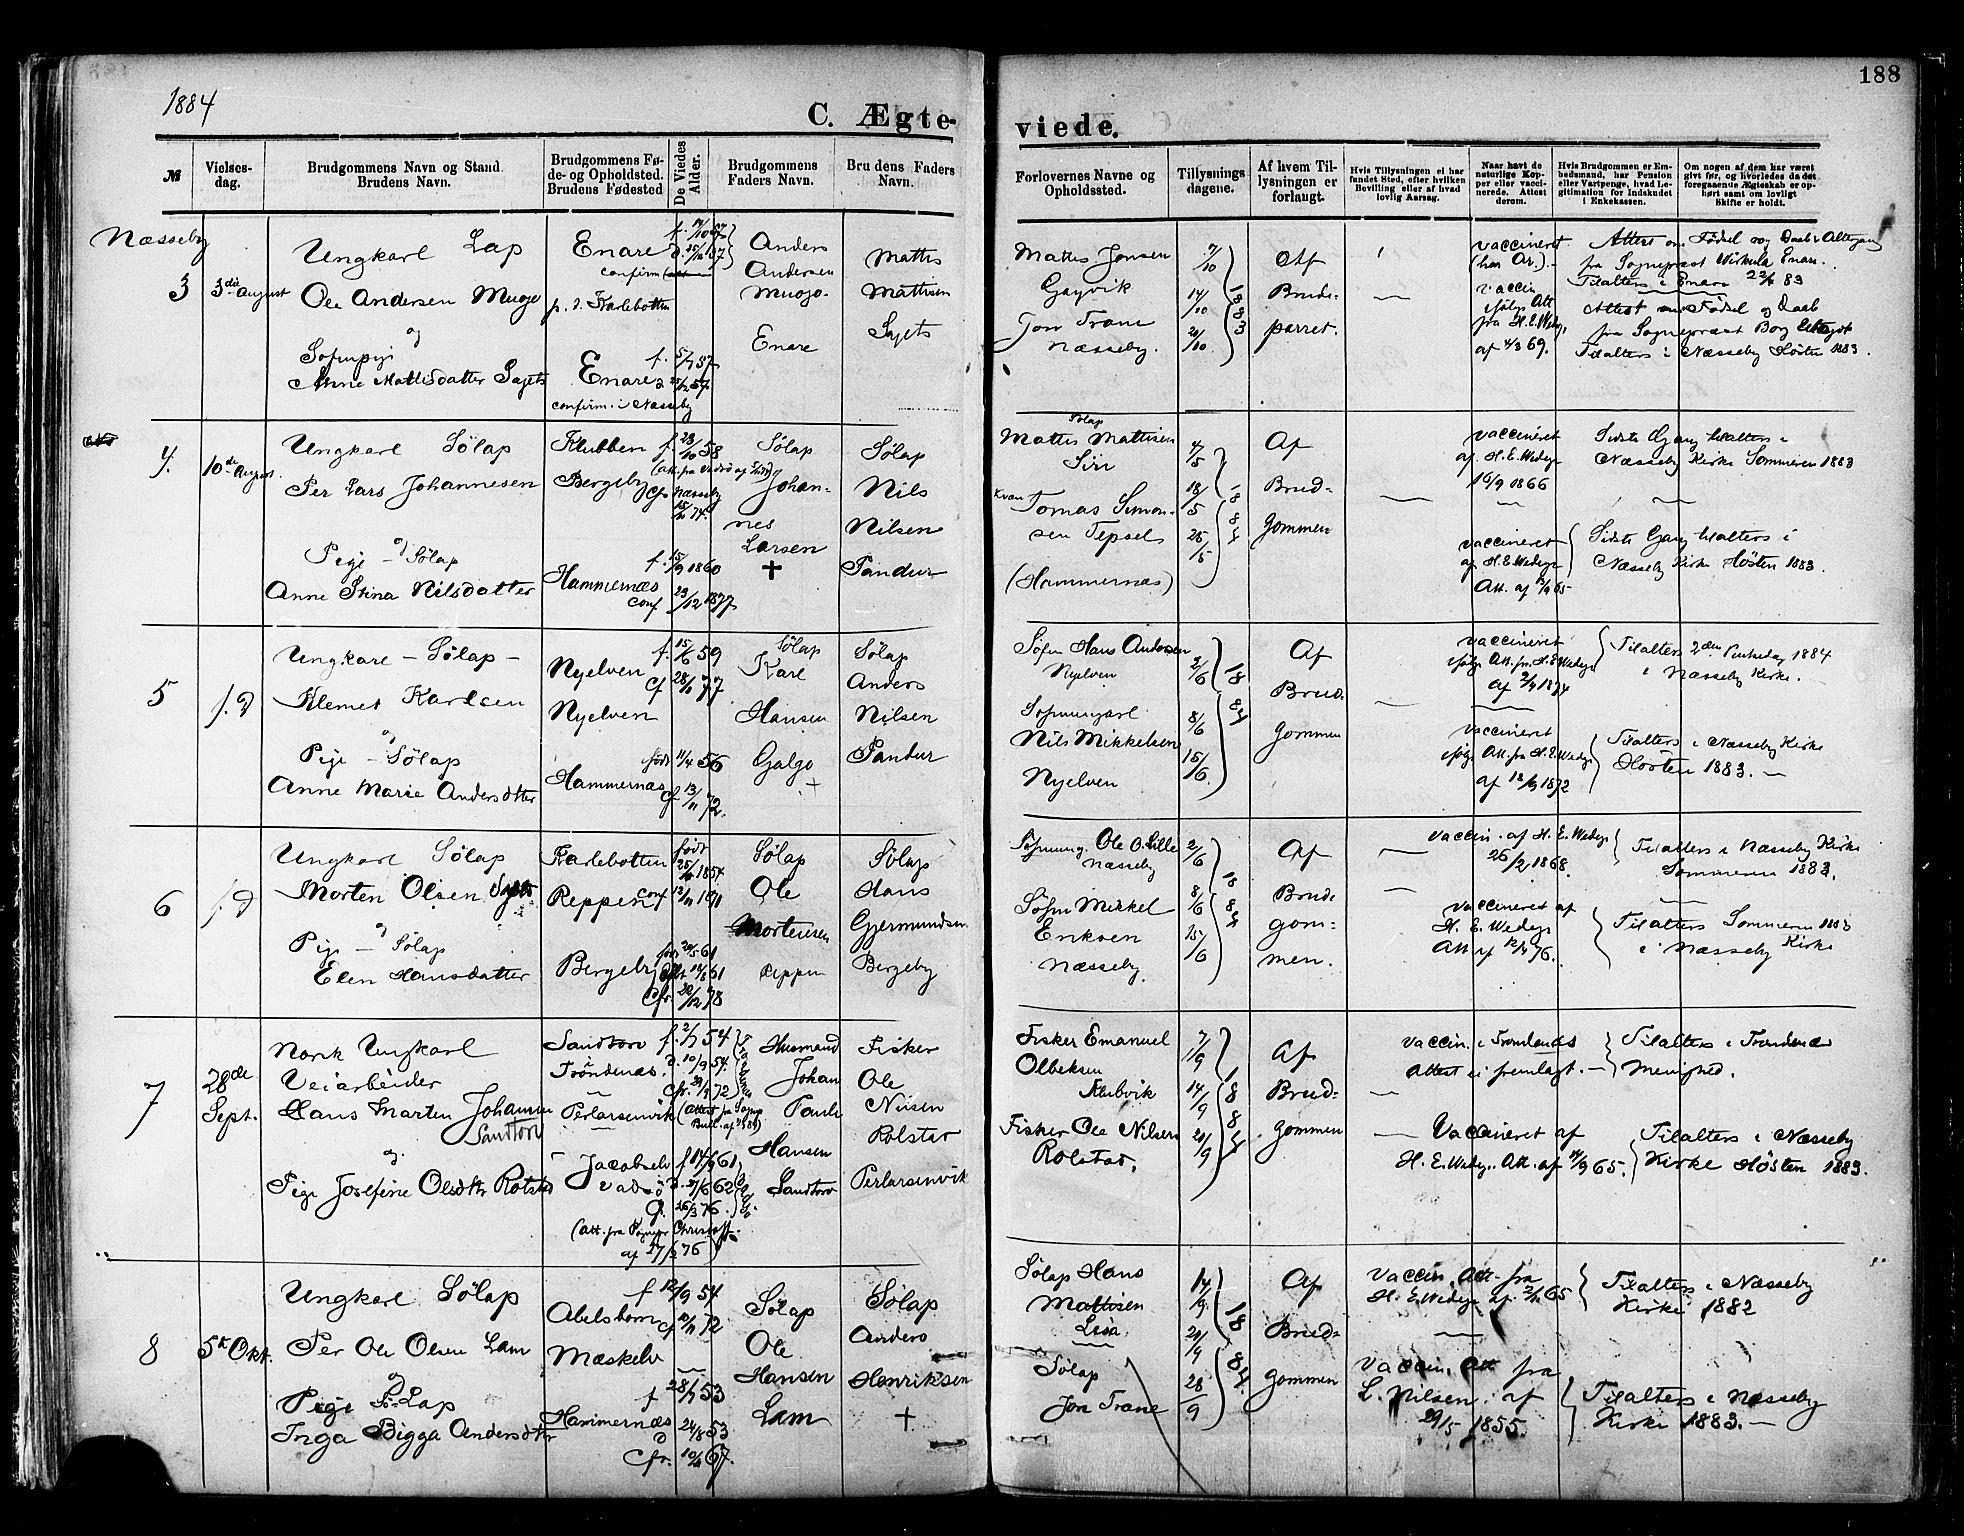 188
1884
C. Ægte-
viede.
№
Vielses-
dag.
Brudgommens Navn og Stand
Brudens Navn.
Brudgommens Fø-
de- og Opholdsted.
Brudens Fødested
De Viedes
Alder.
Brudgommens
Faders Navn.
Brudens Faders
Navn.
Forlovernes Navne og
Opholdssted.
Tillysnings
dagene.
Af hvem Til-
lysningen er
forlangt.
Hvis Tillysningen ei har
fundet Sted, efter hvilken
Bevilling eller af hvad
lovlig Aarsag.
Naar havt de
naturlige Kop-
per eller vacci-
nerede. Attest
derom.
Hvis Brudgommen er Em-
bedsmand, har Pension
eller Vartpenge, hvad Le-
gitimation for Indskudet
i Enkekassen.
Om nogen af dem har været
gift før, og hvorledes da det
foregaaende Ægteskab er op-
hørt samt om lovligt
Skifte er holdt.
Næsseby
3
3die August
Ungkarl Lap
Ole Andersen Muojo
og
Anne Mattisdatter Sajets
Enare
confirm
p. t. Karlebotten
f. 5/7 57
Enare
confirm. i Næsseby
Anders
Andersen
Muojo.
Enare
Mattis
Mattisen
Sajets
Mattis Jonsen
Jon Trane
Næsseby.
7/10
14/10
21/10
1883
Af
Brude-
parret.
—
vaccineret
(har Ar.).-
vaccin
ifølge Att
fra H. E. Wedege
af 4/8 69.
Attest om Fødsel og Daab & Altergang
fra Sogneprest Wirkula Enare.
Tilalters i Enare 83
Attest om Fødsel og Daab
fra Sogneprest
Tilalters i Næsseby Høsten 1883.
4.
10de August
Ungkarl Sölap
Per Lars Johannesen
og
Pige - Sölap
Anne Stina Nilsdatter
Klubben f. 23/10 58
Bergeby Cf. Næsseby
74.
f. 15/9 1860
Hammernæs
conf 23/12 1877
Sölap
Johan-
nes
Larsen
†
Sölap
Nils
Nilsen
Pandur
Sölap
Mattis Mattisen
Siri
Kvæn
Tomas Simon-
sen
(Hammernæs)
4/5
18/5
25/5
1884
Af
Brud-
gommen
—
vaccineret
af H. E. Wedege
16/9 1866
—
vaccineret
af H. E. Wedege
Att. af 65
Sidste Gang tilalters i
Næsseby Kirke Sommeren 1883
—
Sidste Gang tilalters i
Næsseby Kirke Høsten 1883.
5
f. D
Ungkarl - Sölap -
Klemet Karlsen
og
Pige - Sölap
Anne Marie Andersdtter
f. 15/6 59
Nyelven
Cf 28/11 77
Nyelven
født 11/4 56
Hammernæs
Cf 13/11 72.
Sölap
Karl
Hansen
Galgo
+
Sölap
Anders
Nilsen
Pandur
Hans Andersen
Nyelven
Nils Mikkelsen
Nyelven
2/6
8/6
15/6
1884
Af
Brud-
gommen
—
vaccineret
ifølge Att. fra H. E. Wedege
af 1874
—
vaccineret
ifølge Att. fra H. E. Wedege
af 1872
Tilalters 2den Pintsedag 1884
i Næsseby Kirke.
Tilalters i Næsseby Kirke
Høsten 1883. —
6
f. D
Ungkarl Sölap
Morten Olsen
og
Pige - Sölap
Elen Hansdatter
Karlebotten
født 1854
Reppen conf 12/11 1871
født 20/5 61
Bergeby
Cfr. 22/12 78
Sölap
Ole
Mortensen
Reppen
Sölap
Hans
Gjermundsen
Bergeby
Ole O. Lille
Næsseby
Mikkel
Næsseby.
2/6
8/6
15/6
1884
Af
Brud-
gom-
men.
—
—
vaccin. af H. E. Wedege
26/2 1868.
vaccineret af
H. E. Wedege
Att. af 76.
Tilalters i Næsseby Kirke
Sommeren 1883.
—
Tilalters Sommeren 1883
i Næsseby Kirke
7
28de
Sept.
Norsk Ungkarl
Veiarbeider
Hans Martin Johansen
Sandtorv
og
Pige Josefine Olsdtr Rolstad
Sandtorv f. 2/7 54
Trondenæs. d. 10/9 54.
Cfr. 72
Perlarsenvik
—
Jacobselv f 14/9 61
Vadsø d. 62
76.
af 17/3 76
Husmand
Johan
Paul
Hansen
Sandtorv
Fisker
Ole
Nilsen
Rolstad
Perlarsenvik
Fisker Emanuel
Olbeksen
Klubvik
Fisker Ole Nilsen
Rolstad.
7/9
14/9
21/9
1884
Af
Brud-
gommen
—
—
Vaccin. i Trondenæs
Attest ei fremlagt. —
Vaccineret af
H. E. Wedege. Att. af 14/9 65.
Tilalters i Trondenæs
Menighed.
Tilalters i Næsseby
Kirke Høsten 1883.
8
5te Okt.
Ungkarl Sölap
Per Ole Olsen Lam
og
Pige Lap
Inga Bigga Andersdtr
f 12/9 54
Abelsborn
Cf 72
Mæskelv
—
f 28/7 53
Hammernæs
D 24/8 53
Cfr. 67.
Sölap
Ole
Hansen
Lam
Sölap
Anders
Henriksen
†
Sölap Hans
Mattisen
Lisa
Sölap
Jon Trane
14/9
21/9
28/9
1884.
Af
Brud-
gommen
Vaccin. Att. fra
H. E. Wedege af 65
—
Vaccin. Att fra
L. Nilsen af
29/5 1855.
Tilalters i Næsseby
Kirke 1882
Tilalters i Næsseby
Kirke 1883. —